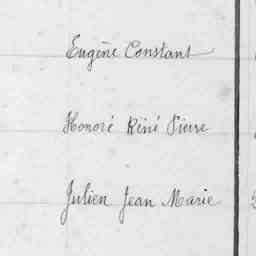 Eugène Constant
Honoré Réné Pierre
Julien Jean Marie